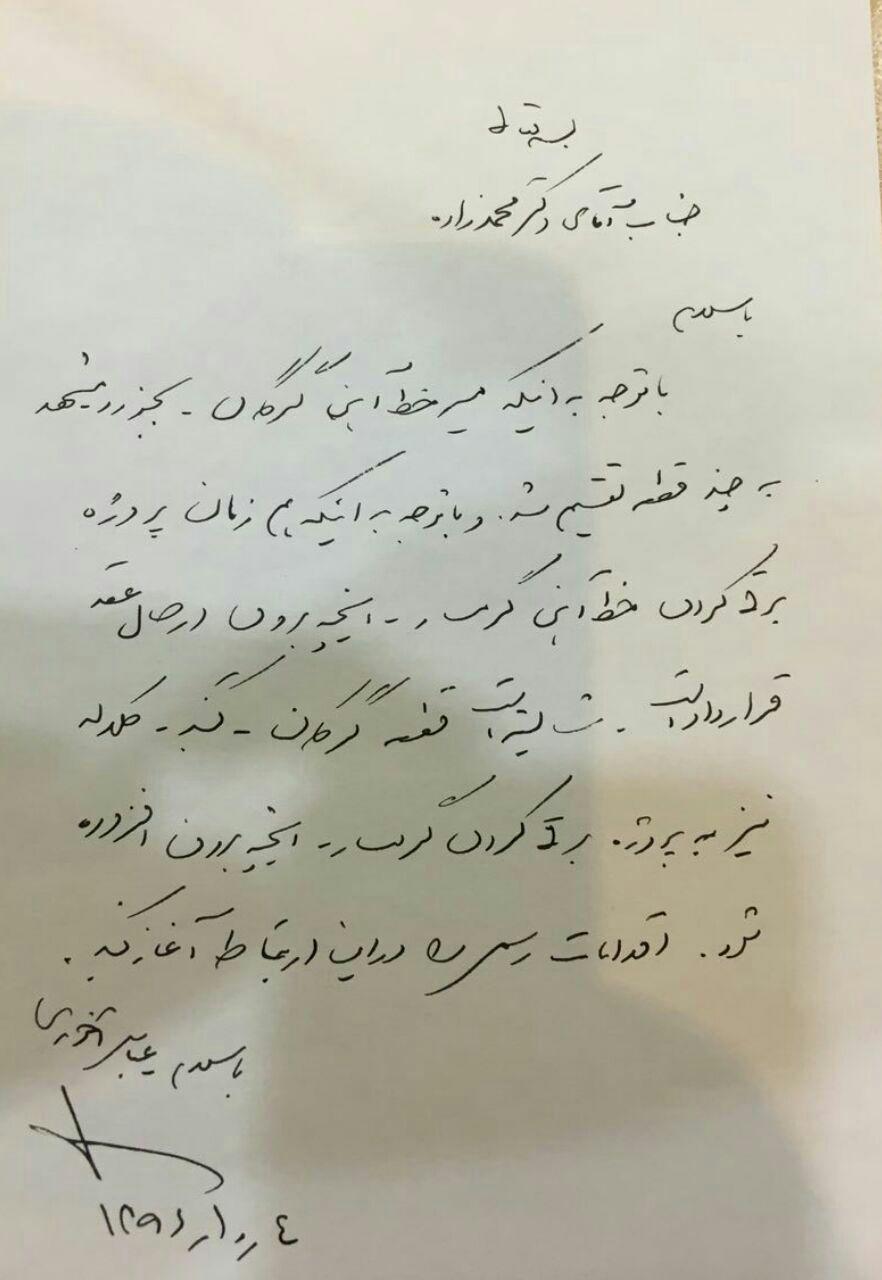 بسمه تعالی
جناب آقای دکتر محمدزاده
با سلام
با توجه به اینکه مسیر خط آهن گرگان - بجنورد - مشهد
به چند قطعه تقسیم شد. و با توجه به اینکه هم زمان پروژه
برقی کردن خط آهن گرمسار - اینچه برون در حال عقد
قرارداد است. شایسته است قطعه گرگان - گنبد - کلاله
نیز به پروژه برقی کردن گرمسار - اینچه برون افزوده
شود. اقدامات رسمی را در این ارتباط آغاز کنید.
با سلام عباس آخوندی